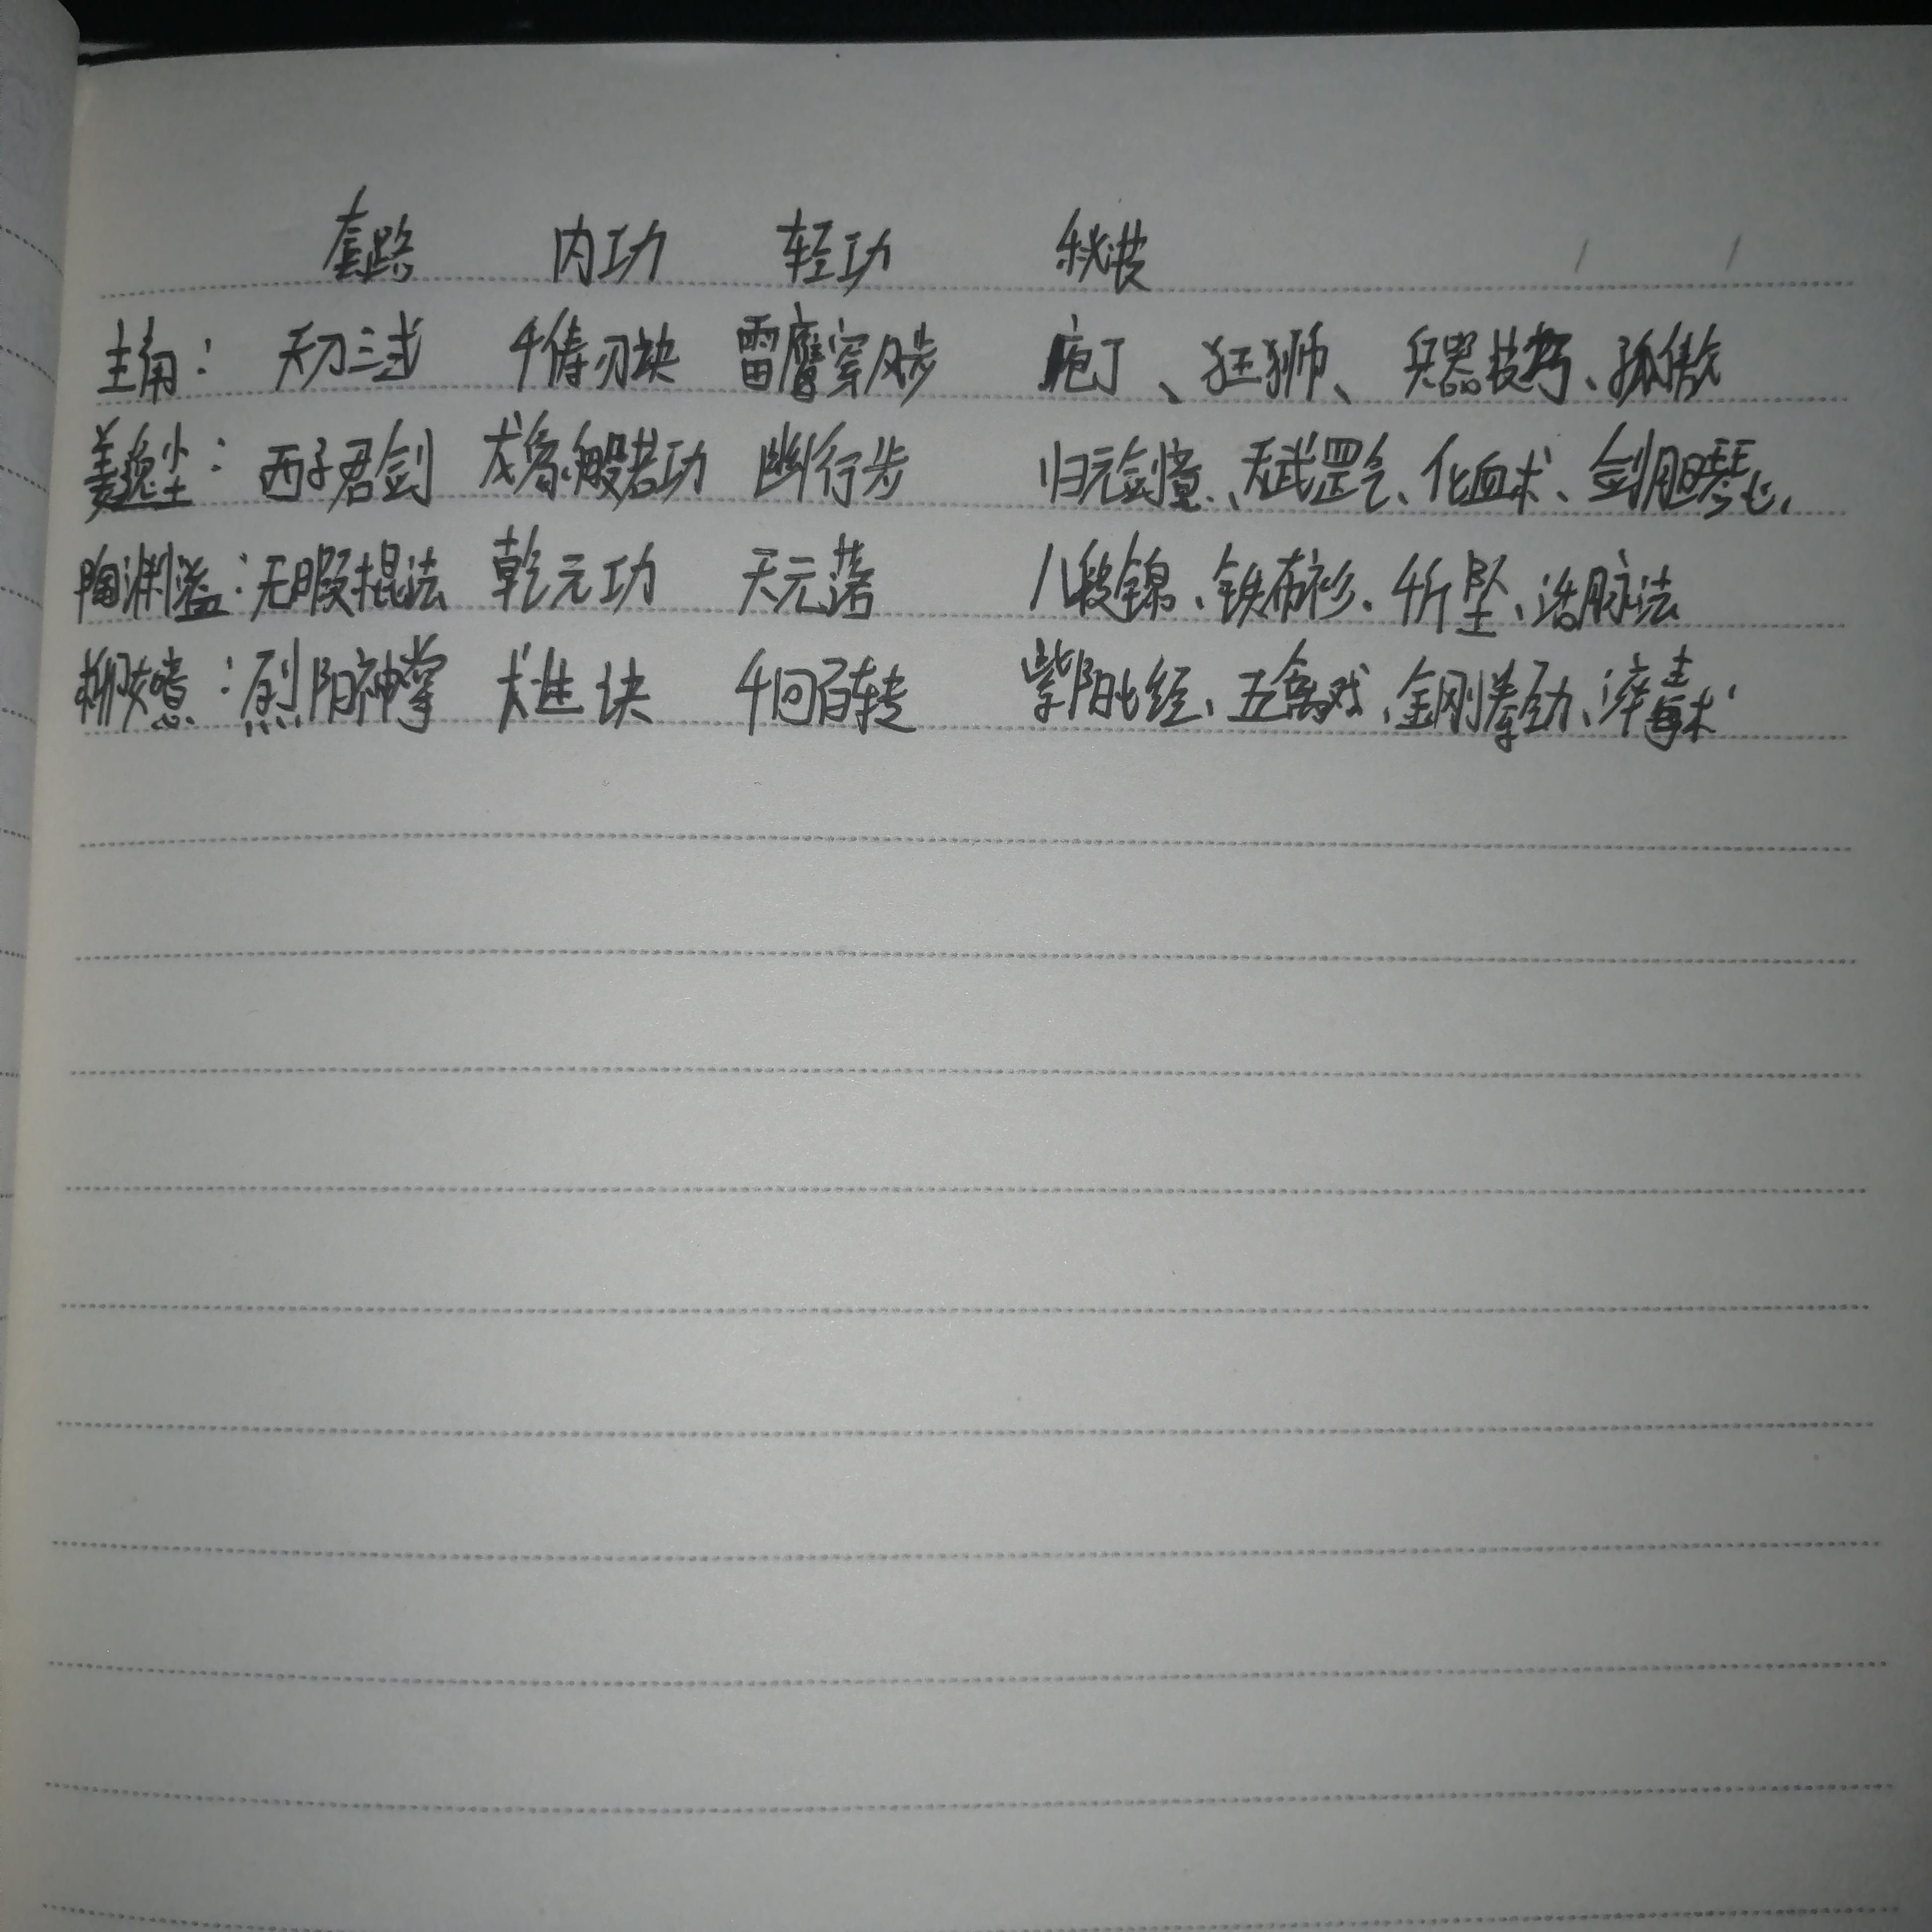 套路 内功 轻功 秘技
主角： 天刀三式 千俦刃诀 雷鹰穿风步 庖丁、狂狮、兵器技巧、孤傲
姜逸尘： 西子君剑 龙象般若功 幽行步 归元剑意、天武罡气、化血术、剑胆琴心、
陶渊溢：无暇棍法 乾元功 天元诺 八段锦、铁布衫、千斤坠、活脉法
柳孜憙：烈阳神掌 诀 千回百转 紫阳心经、五禽戏、金刚拳劲、淬毒术